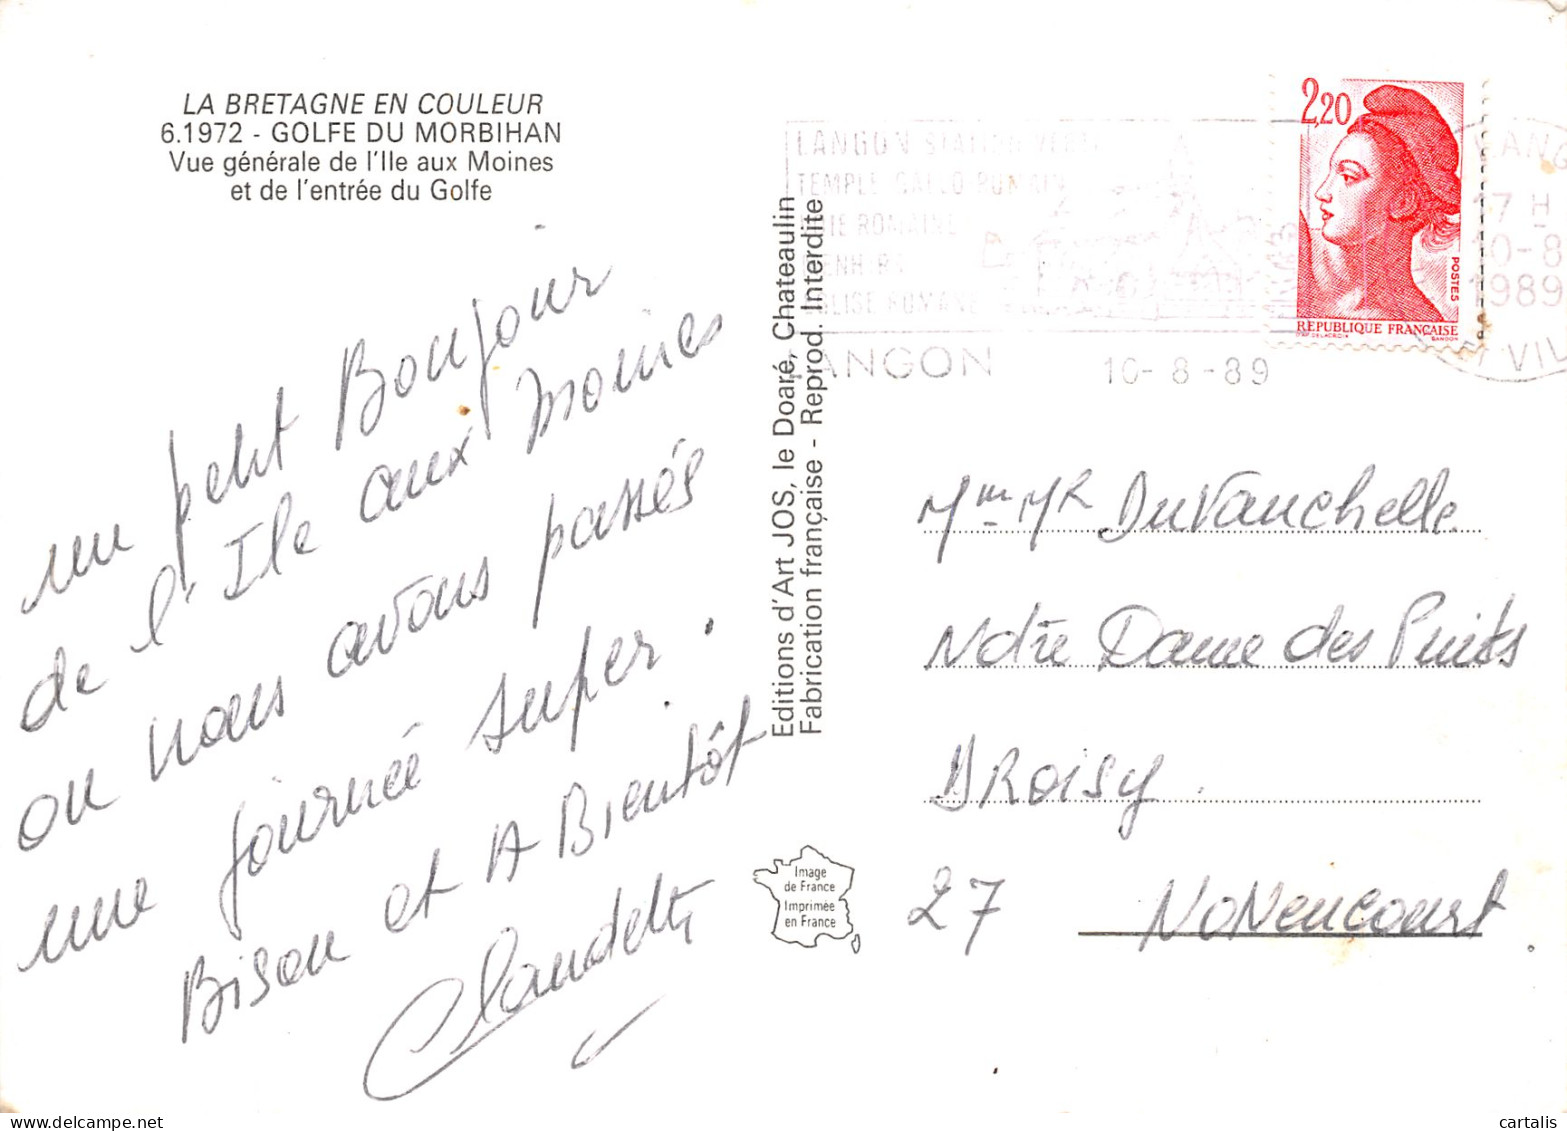 LA BRETAGNE EN COULEUR
6.1972 - GOLFE DU MORBIHAN
Vue générale de l'Ile aux Moines
et de l'entrée du Golfe
un petit Bonjour
de l'Ile aux Moines
ou nous avons passés
une journée super.
Bison et A Bientôt
Claudette
Editions d'Art JOS, le Doaré, Chateaulin
Fabrication française - Reprod. Interdite
Image
de France
Imprimée
en France
LANGON STATION VERTE
TEMPLE GALLO ROMAIN
VOIE ROMAINE
MENHIRS
EGLISE ROMANE
LANGON
10-8-89
2,20
POSTES
RÉPUBLIQUE FRANÇAISE
17 H
10-8
1989
Mme Mr Duvauchelle
Notre Dame des Puits
DROISY.
27 NoNencourt.
cartalis